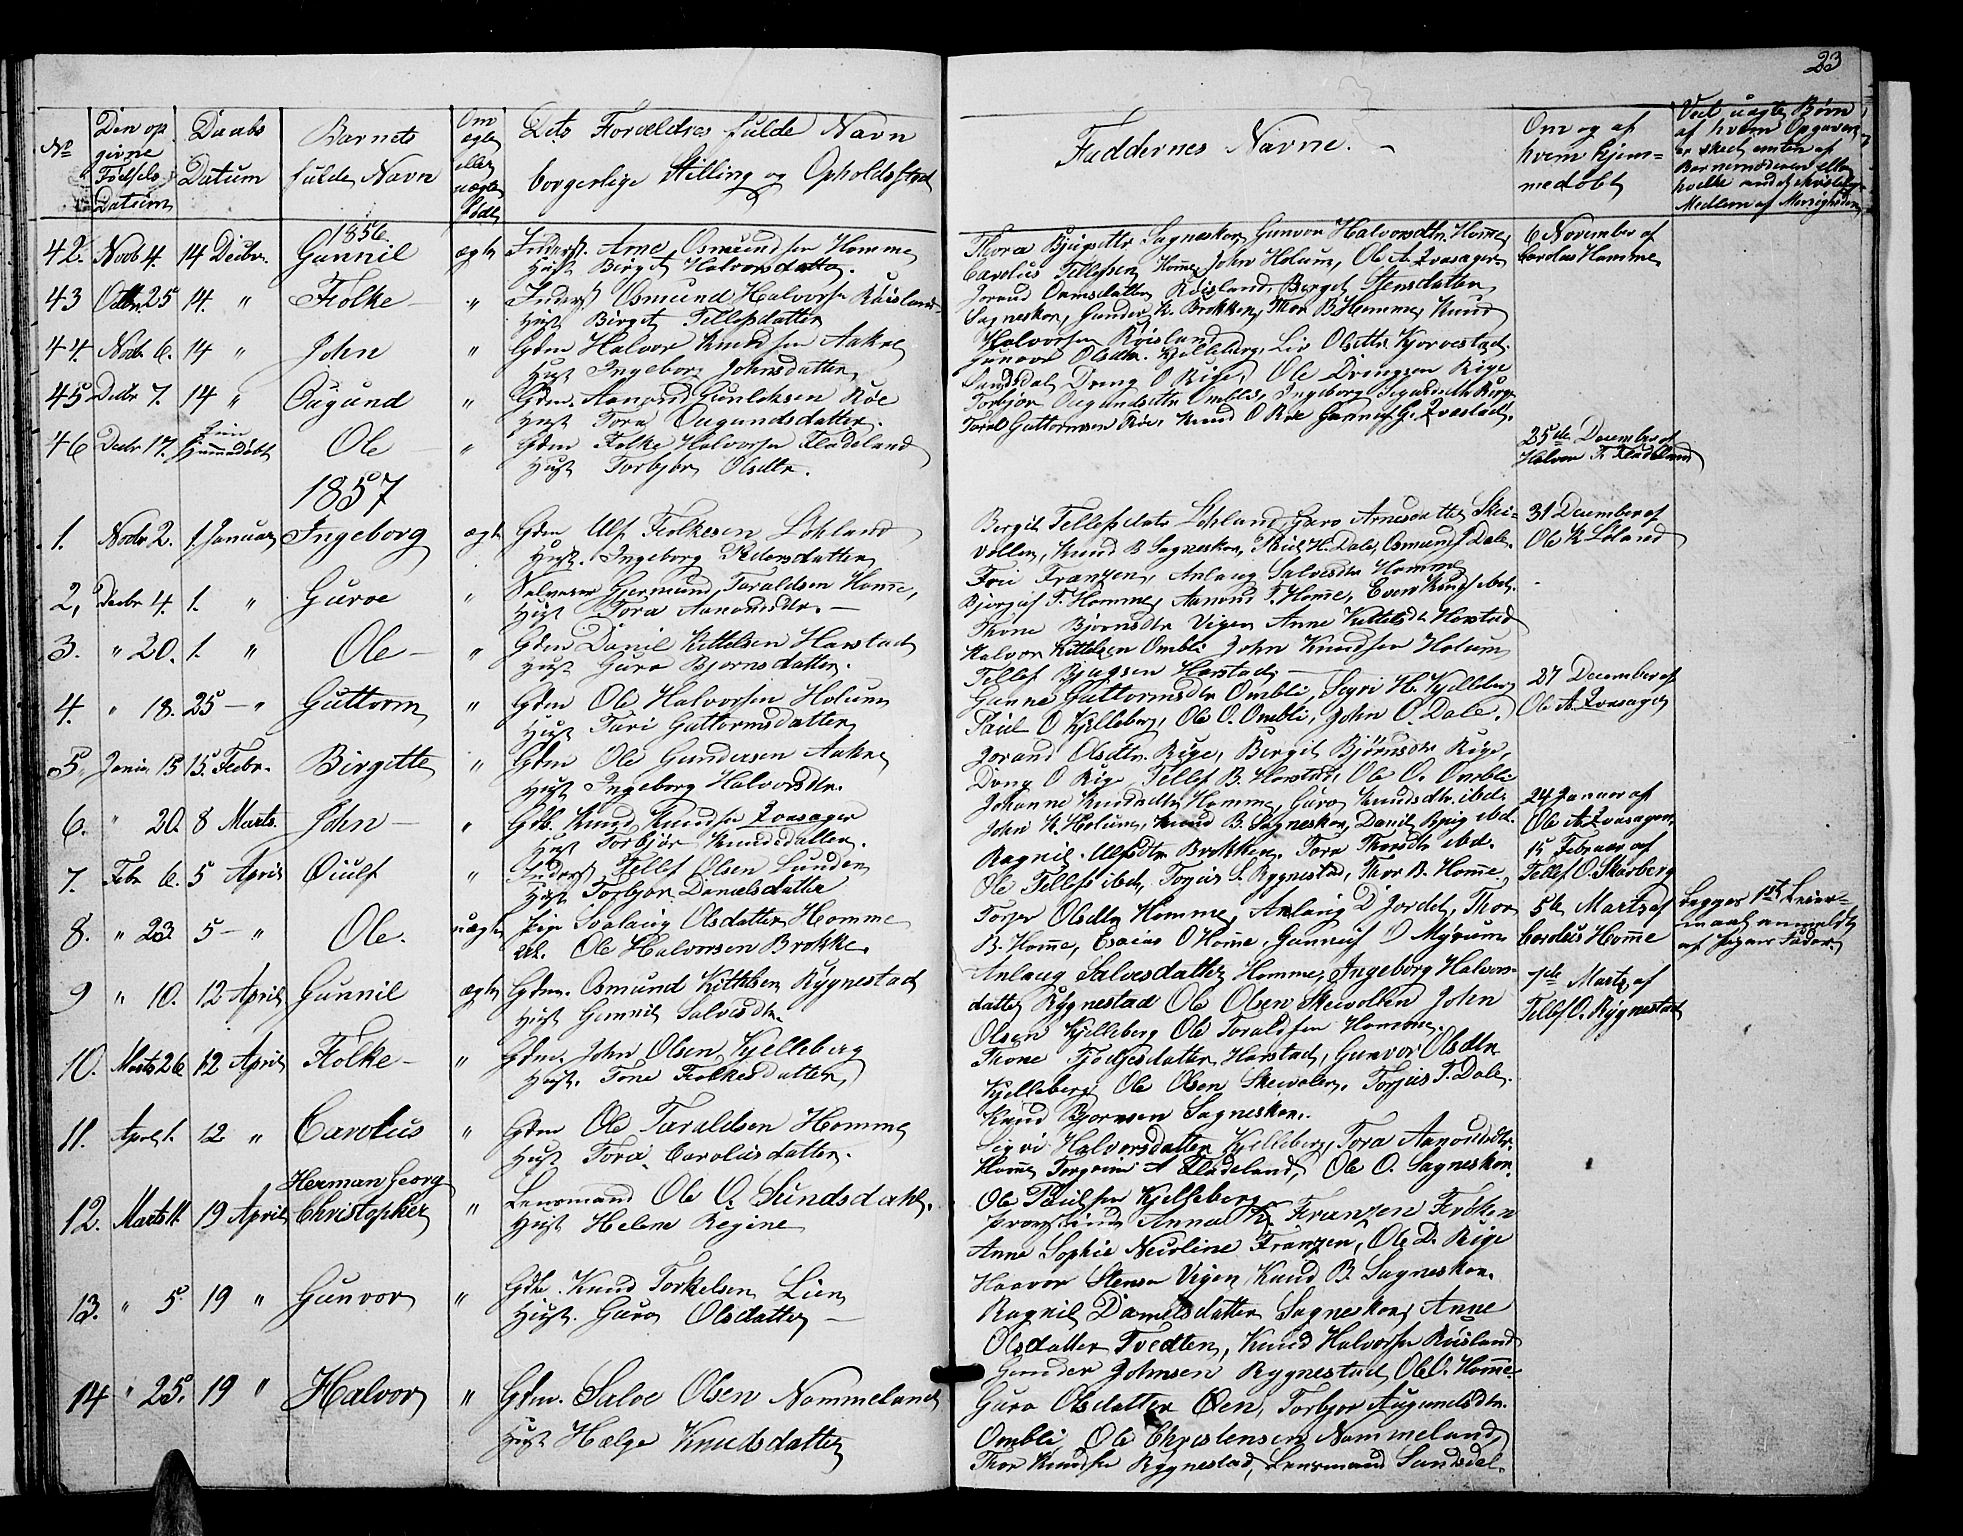 23
No
Den op
givne
Fødsels
Datum
Daabs
Datum
Barnets
fulde Navn
Om
ægte
eller
uægte
født
Dets Forældres fulde Navn
borgerlige Stilling og Opholdssted
Faddernes Navne. -
Om og af
hvem hjem=
medøbt
Ved uægte Børn
af hvem Opgaven
er skeet enten af
Barnemoderen eller
hvilke andet
Medlem af Menigheden
1856
42. Novb 4. 14 Decbr. Gunnil ægte Inderst. Arne Osmundsen Homme
Hust Birgit Halvorsdatter.
Thora Sagneskor, Gunvor Halvorsdtr. Homme
Carolus Tellefsen Homme, John Holum, Ole A. Zvasager
6 November af
Carolus Homme
43 Octbr. 25 14. " Folke - " Inderst Osmund Halvorsen Røisland
Hust Birgit Tellefsdatter
Jorand Ormsdatter Røisland, Berget Stensdatter
Sagneskor, Gunder K. Brokken, Thor B Homme, Knud
Halvorsen Røisland
44. Novbr 6. 14 " John " Gdm Halvor Knudsen Aakre
Hust Ingeborg Johnsdatter
Gunvor Olsdtr. Kjelleberg, Liv Olsdtr
Sundsdal, Dreng O Rige, Ole Drengsen Rige
45 Decbr 7. 14 " Ougund " Gdm. Aanond Gunleksen Røe
Hust Tora Ougundsdatter.
Torbjør Ougundsdtr Ombli, Ingeborg
Tarald Guttormsen Røe, Knud O Røe
46 Decbr 17. Hjemmedøbt Ole " Gdm Folke Halvorsen Fladeland
Hust Torbjør Olsdtr.
25de December af
Halvor F. Fladeland
1857
1. Novbr 2. 1. Januar Ingeborg ægte Gdm Ulf Folkesen Løhland
Hust. Ingeborg Pedersdatter
Bergit Tellefsdatr Løhland, Guro Arnesdatter Skei-
vollen, Knud B Sagneskor, Paul H. Dale, Osmund J Dale.
31 December af
Ole K Løland
2. Decbr 4. 1. " Guroe " Gjermund Taraldsen Homme,
Hust Tora Aanondsdtr. -
Frue Franzen, Anlaug Salvesdtr Homme
Bjørguf T. Homme, Aanond T. Homme, Even Knudsen ibd.
3. " 20. 1. " Ole - " Gdm Daniel Kittelsen Harstad
Hust Guro Bjornsdatter.
Thone Bjørnsdtr Vigen Anne Kittelsdtr Harstad
Halvor Kittelsen Ombli John Knudsen Holum
Tellef Bjugsen Harstad
4. " 18. 25 - " Guttorm " Gdm Ole Halvorsen Holum
Hust Tari Guttormsdatter
Gunne Guttormsdtr Ombli, Sigri H. Kjelleberg
Paul O Kjelleberg, Ole O. Ombli, John O. Dale.
27 December af
Ole A. Zvasager
5. Janur 15 15. Febr. Birgitte " Gdm Ole Gundersen Aakre
Hust Ingeborg Halvorsdtr.
Jorand Olsdtr. Rige, Bergit Bjørnsdtr Rige,
Dreng O Rige Tellef B. Harstad, Ole O. Ombli
6. " 20. 8 Marts. John - " Gdb. Knud Knudsen Zvasager
Hust Torbjør Knudsdatter.
Johanne Knudsdtr Homme, Guro Knudsdtr. ibd.
John K. Holum, Knud B. Sagneskor, Daniel Bjug ibd.
24 Januar af
Ole A. Zvasager,
7. Febr 6. 5 April Øiulf " Inderst Tellef Olsen Lunden
Hust Torbjør Danielsdatter
Ragnil Ulfsdtr. Brokken. Tora Thorsdtr ibd.
Ole Tellefs ibd, Torjus S. Rygnestad, Thor B. Homme,
15 Februar af
Tellef O. Skarberg
8. " 23. 5 - " Ole. uægte Pige Svalaug Olsdatter Homme
Uk. Ole Halvorsen Brokke.
Torjer Olsdtr Homme, Anlaug D Jordet, Thor
B. Homme, Esaias O Homme, Gunnuf O Myrum
5te Marts af
Carolus Homme
Begges 1ste Leier-
maal anmeldt
af Pigens Fader.
9 " 10. 12 April Gunnil ægte Gdm. Osmund Kittelsen Rygnestad
Hust Gunnil Salvesdtr.
Anlaug Salvesdatter Homme, Ingeborg Halvors-
datter Rygnestad Ole Olsen Skevollen John
Olsen Kjelleberg Ole Taraldsen Homme.
7de Marts af
Tellef O. Rygnestad
10. Marts 26 12 April Folke - " Gdm. John Olsen Kjelleberg
Hust. Tone Folkesdatter
Thone Harstad, Gunvor Olsdtr
Kjelleberg Ole Olsen Skevolen, Torjus T. Dale,
Knud Bjornsen Sagneskor.
11. April 1. 12 " Carolus " Gdm Ole Taraldsen Homme
Hust Tora Carolusdatter.
Sigri Halvorsdatter Kjelleberg, Tora Aanondsdtr.
Homme Torgrim A Fladeland, Ole O. Sagneskor.
Ole Paulsen Kjelleberg
12. Marts 11. 19 April Herman Georg
Christopher " Lensmand Ole O. Sundsdahl.
Hust Helene Regine
Anna K. Franzen Frøken
Anne Sophie Nicoline Franzen, Ole D. Rige
Haavor Stensen Vigen, Knud B. Sagneskor.
13. " 5. 19 " Gunvor " Gdb. Knud Torkelsen Lien
Hust. Guro Olsdatter -
Ragnil Danielsdatter Sagneskor, Anne
Olsdatter Tvedten, Knud Halvorsen Røisland
Gunder Johnsen Rygnestad, Ole O. Homme
14 " 25. 19 " Halvor " Gdm. Salve Olsen Nommeland
Hust Hælge Knudsdatter
Guro Olsdatter Øen, Torbjor Augundsdtr.
Ombli, Ole Christensen Nommeland,
Thor Knudsen Rygnestad, Lensmand Sundsdal.